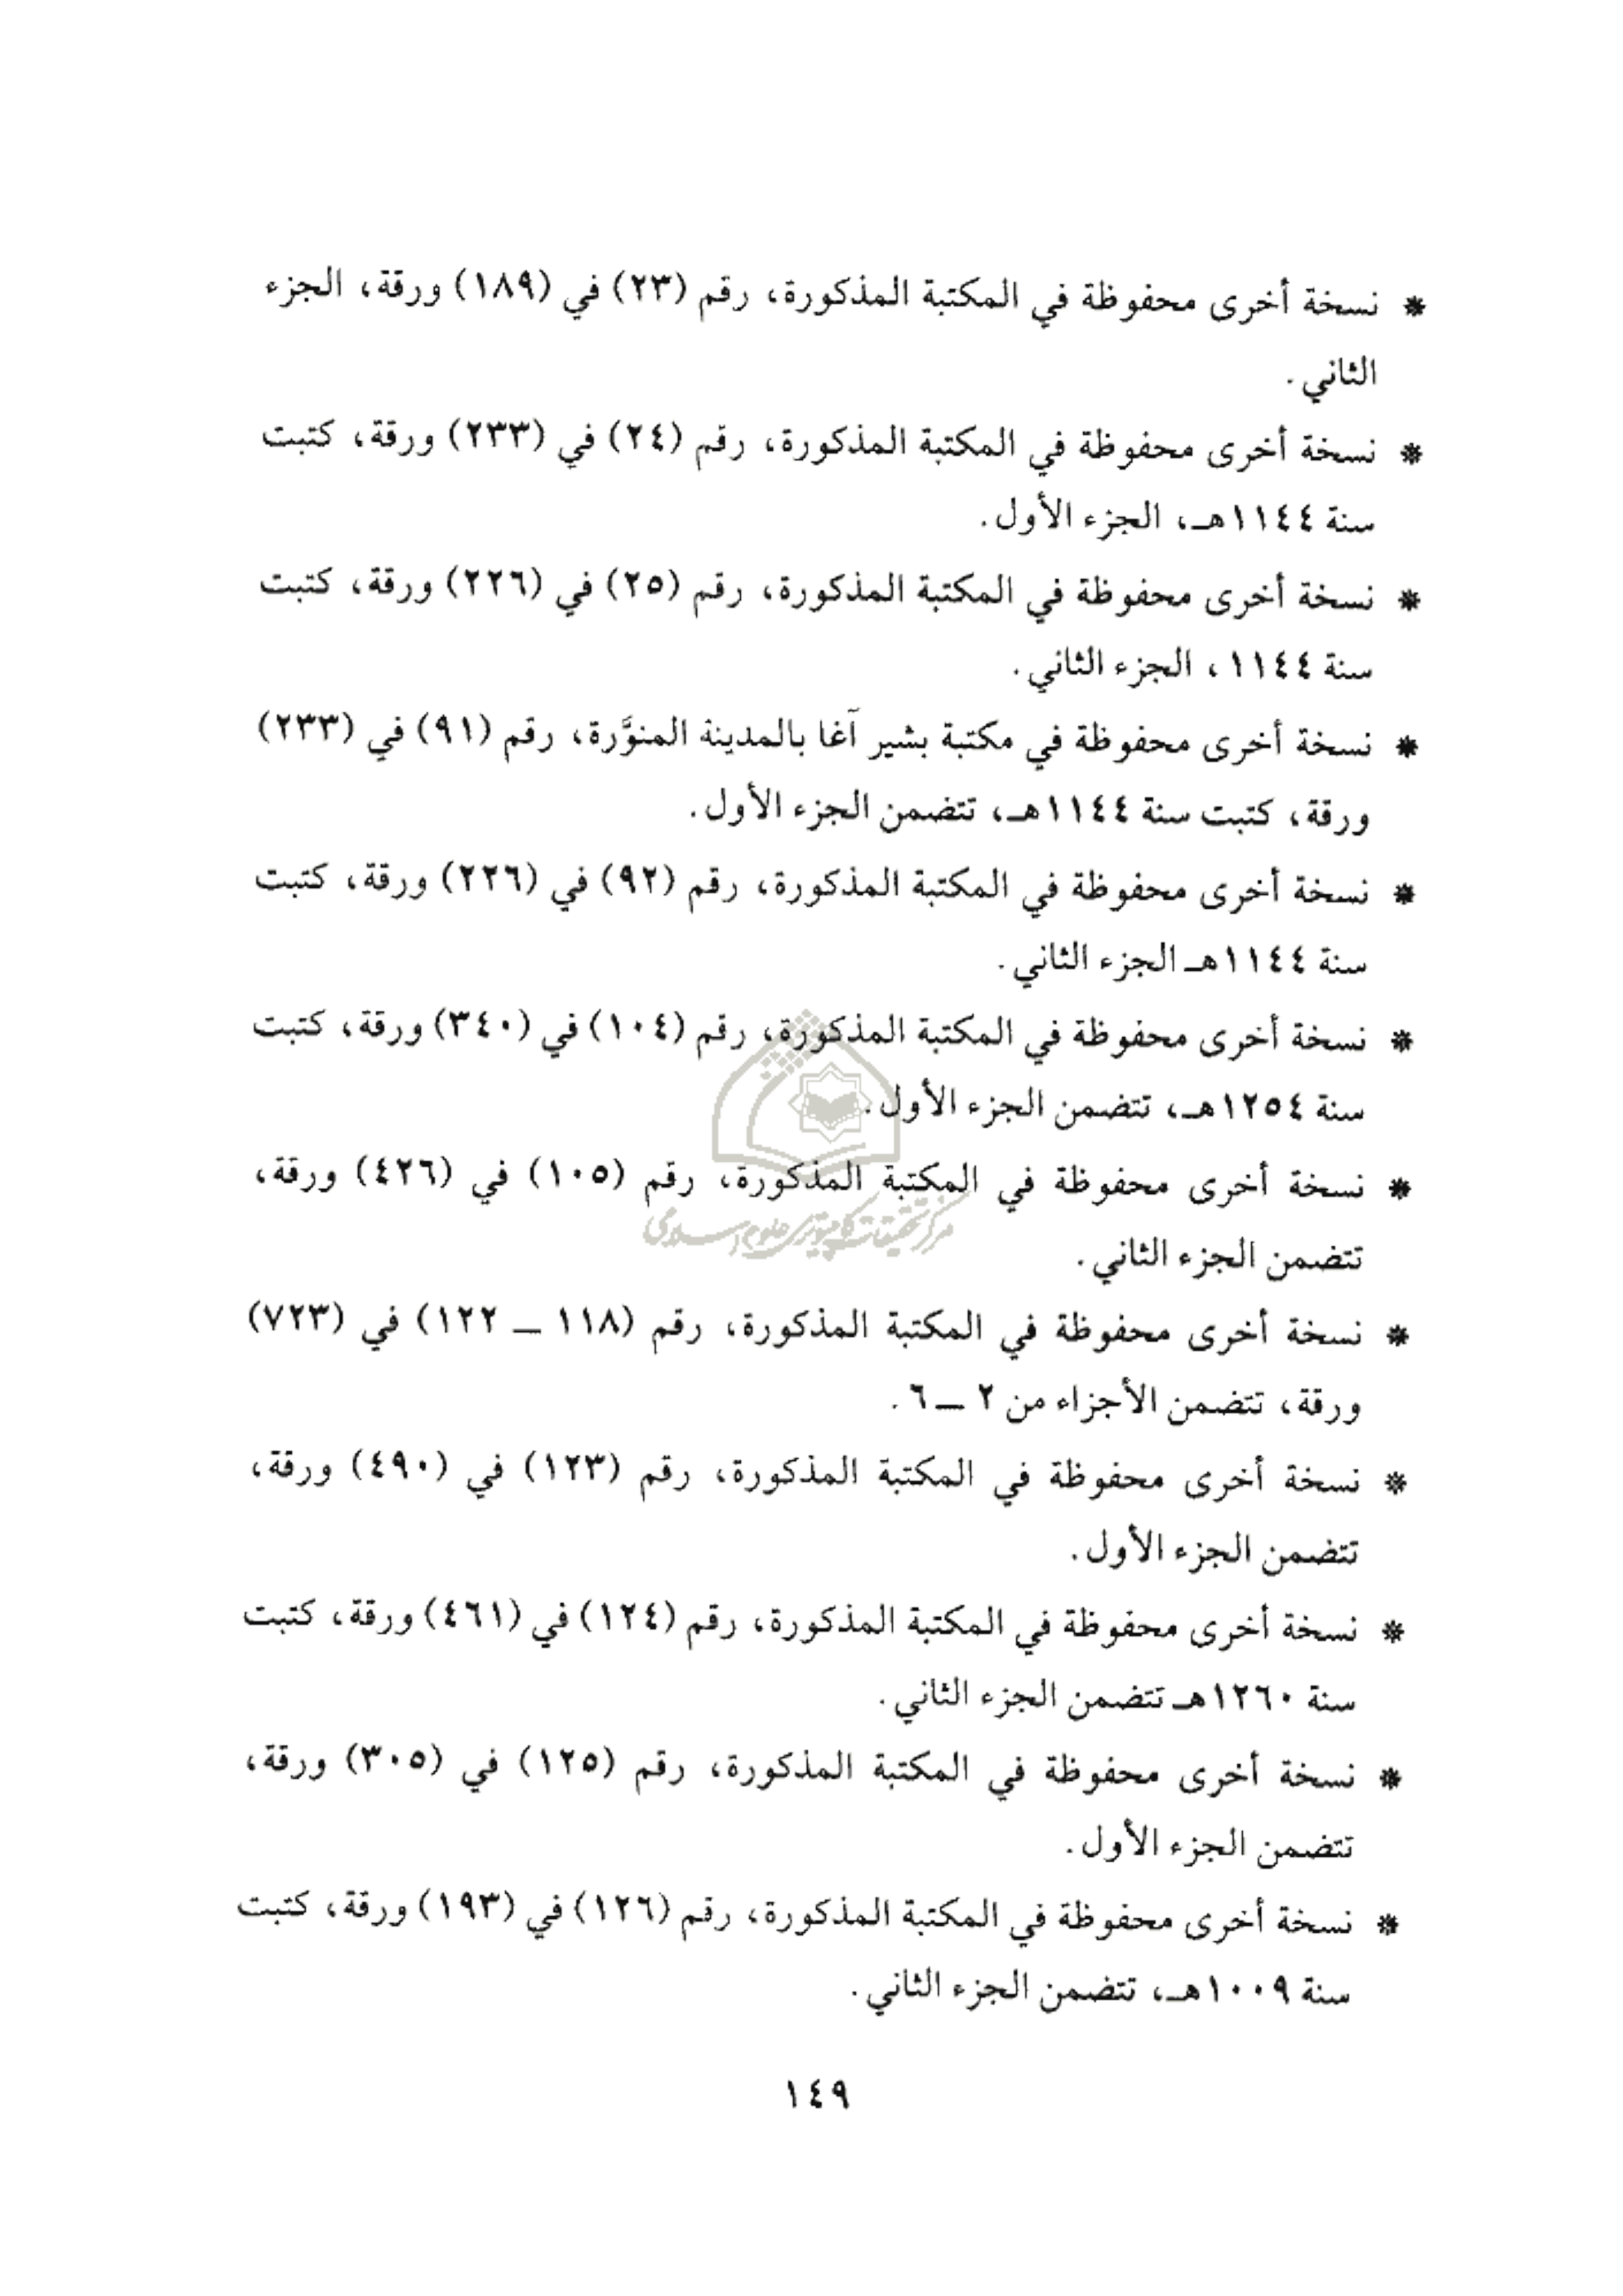 * نسخة أخرى محفوظة في المكتبة المذكورة، رقم (٢٣) في (١٨٩) ورقة، الجزء
الثاني.
* نسخة أخرى محفوظة في المكتبة المذكورة، رقم (٢٤) في (٢٣٣) ورقة، كتبت
سنة ١١٤٤هـ، الجزء الأول.
* نسخة أخرى محفوظة في المكتبة المذكورة، رقم (٢٥) في (٢٢٦) ورقة، كتبت
سنة ١١٤٤، الجزء الثاني.
* نسخة أخرى محفوظة في مكتبة بشير آغا بالمدينة المنوَّرة، رقم (٩١) في (٢٣٣)
ورقة، كتبت سنة ١١٤٤هـ، تتضمن الجزء الأول.
* نسخة أخرى محفوظة في المكتبة المذكورة، رقم (٩٢) في (٢٢٦) ورقة، كتبت
سنة ١١٤٤هـ الجزء الثاني.
* نسخة أخرى محفوظة في المكتبة المذكورة، رقم (١٠٤) في (٣٤٠) ورقة، كتبت
سنة ١٢٥٤هـ، تتضمن الجزء الأول.
* نسخة أخرى محفوظة في المكتبة المذكورة، رقم (١٠٥) في (٤٢٦) ورقة،
مرکز تحقیقات کامپیوتری علوم اسلامی
تتضمن الجزء الثاني.
* نسخة أخرى محفوظة في المكتبة المذكورة، رقم (١١٨ ــ ١٢٢) في (٧٢٣)
ورقة، تتضمن الأجزاء من ٢ ــ ٦.
* نسخة أخرى محفوظة في المكتبة المذكورة، رقم (١٢٣) في (٤٩٠) ورقة،
تتضمن الجزء الأول.
* نسخة أخرى محفوظة في المكتبة المذكورة، رقم (١٢٤) في (٤٦١) ورقة، كتبت
سنة ١٢٦٠هـ تتضمن الجزء الثاني.
* نسخة أخرى محفوظة في المكتبة المذكورة، رقم (١٢٥) في (٣٠٥) ورقة،
تتضمن الجزء الأول.
* نسخة أخرى محفوظة في المكتبة المذكورة، رقم (١٢٦) في (١٩٣) ورقة، كتبت
سنة ١٠٠٩هـ، تتضمن الجزء الثاني.
١٤٩